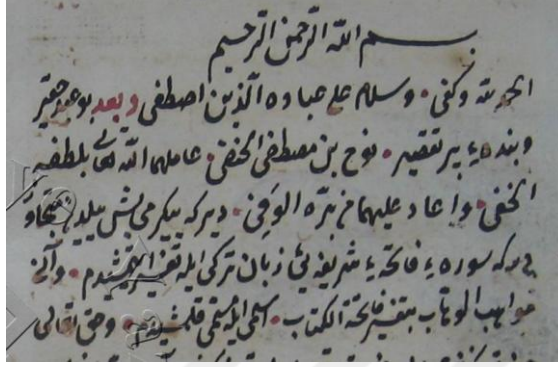 بسم الله الرحمن الرحيم
الحمد لله وكفى • وسلام على عباده الذين اصطفى وبعد بو عبد حقير
وبندهٔ پر تقصير • نوح بن مصطفى الحنفى • عاملهما الله تعالى بلطفه
الخفى • واعاد عليهما من بره الوفى • ديركه بيكرمى بش ييلنده
سورهٔ فاتحهٔ شريفه يى زبان تركى ايله تفسير ايتمشيدم • وآنى
مواهب الوهاب بتفسير فاتحة الكتاب • اسمى ايله مسمى قلمشيدم • وحق تعالى